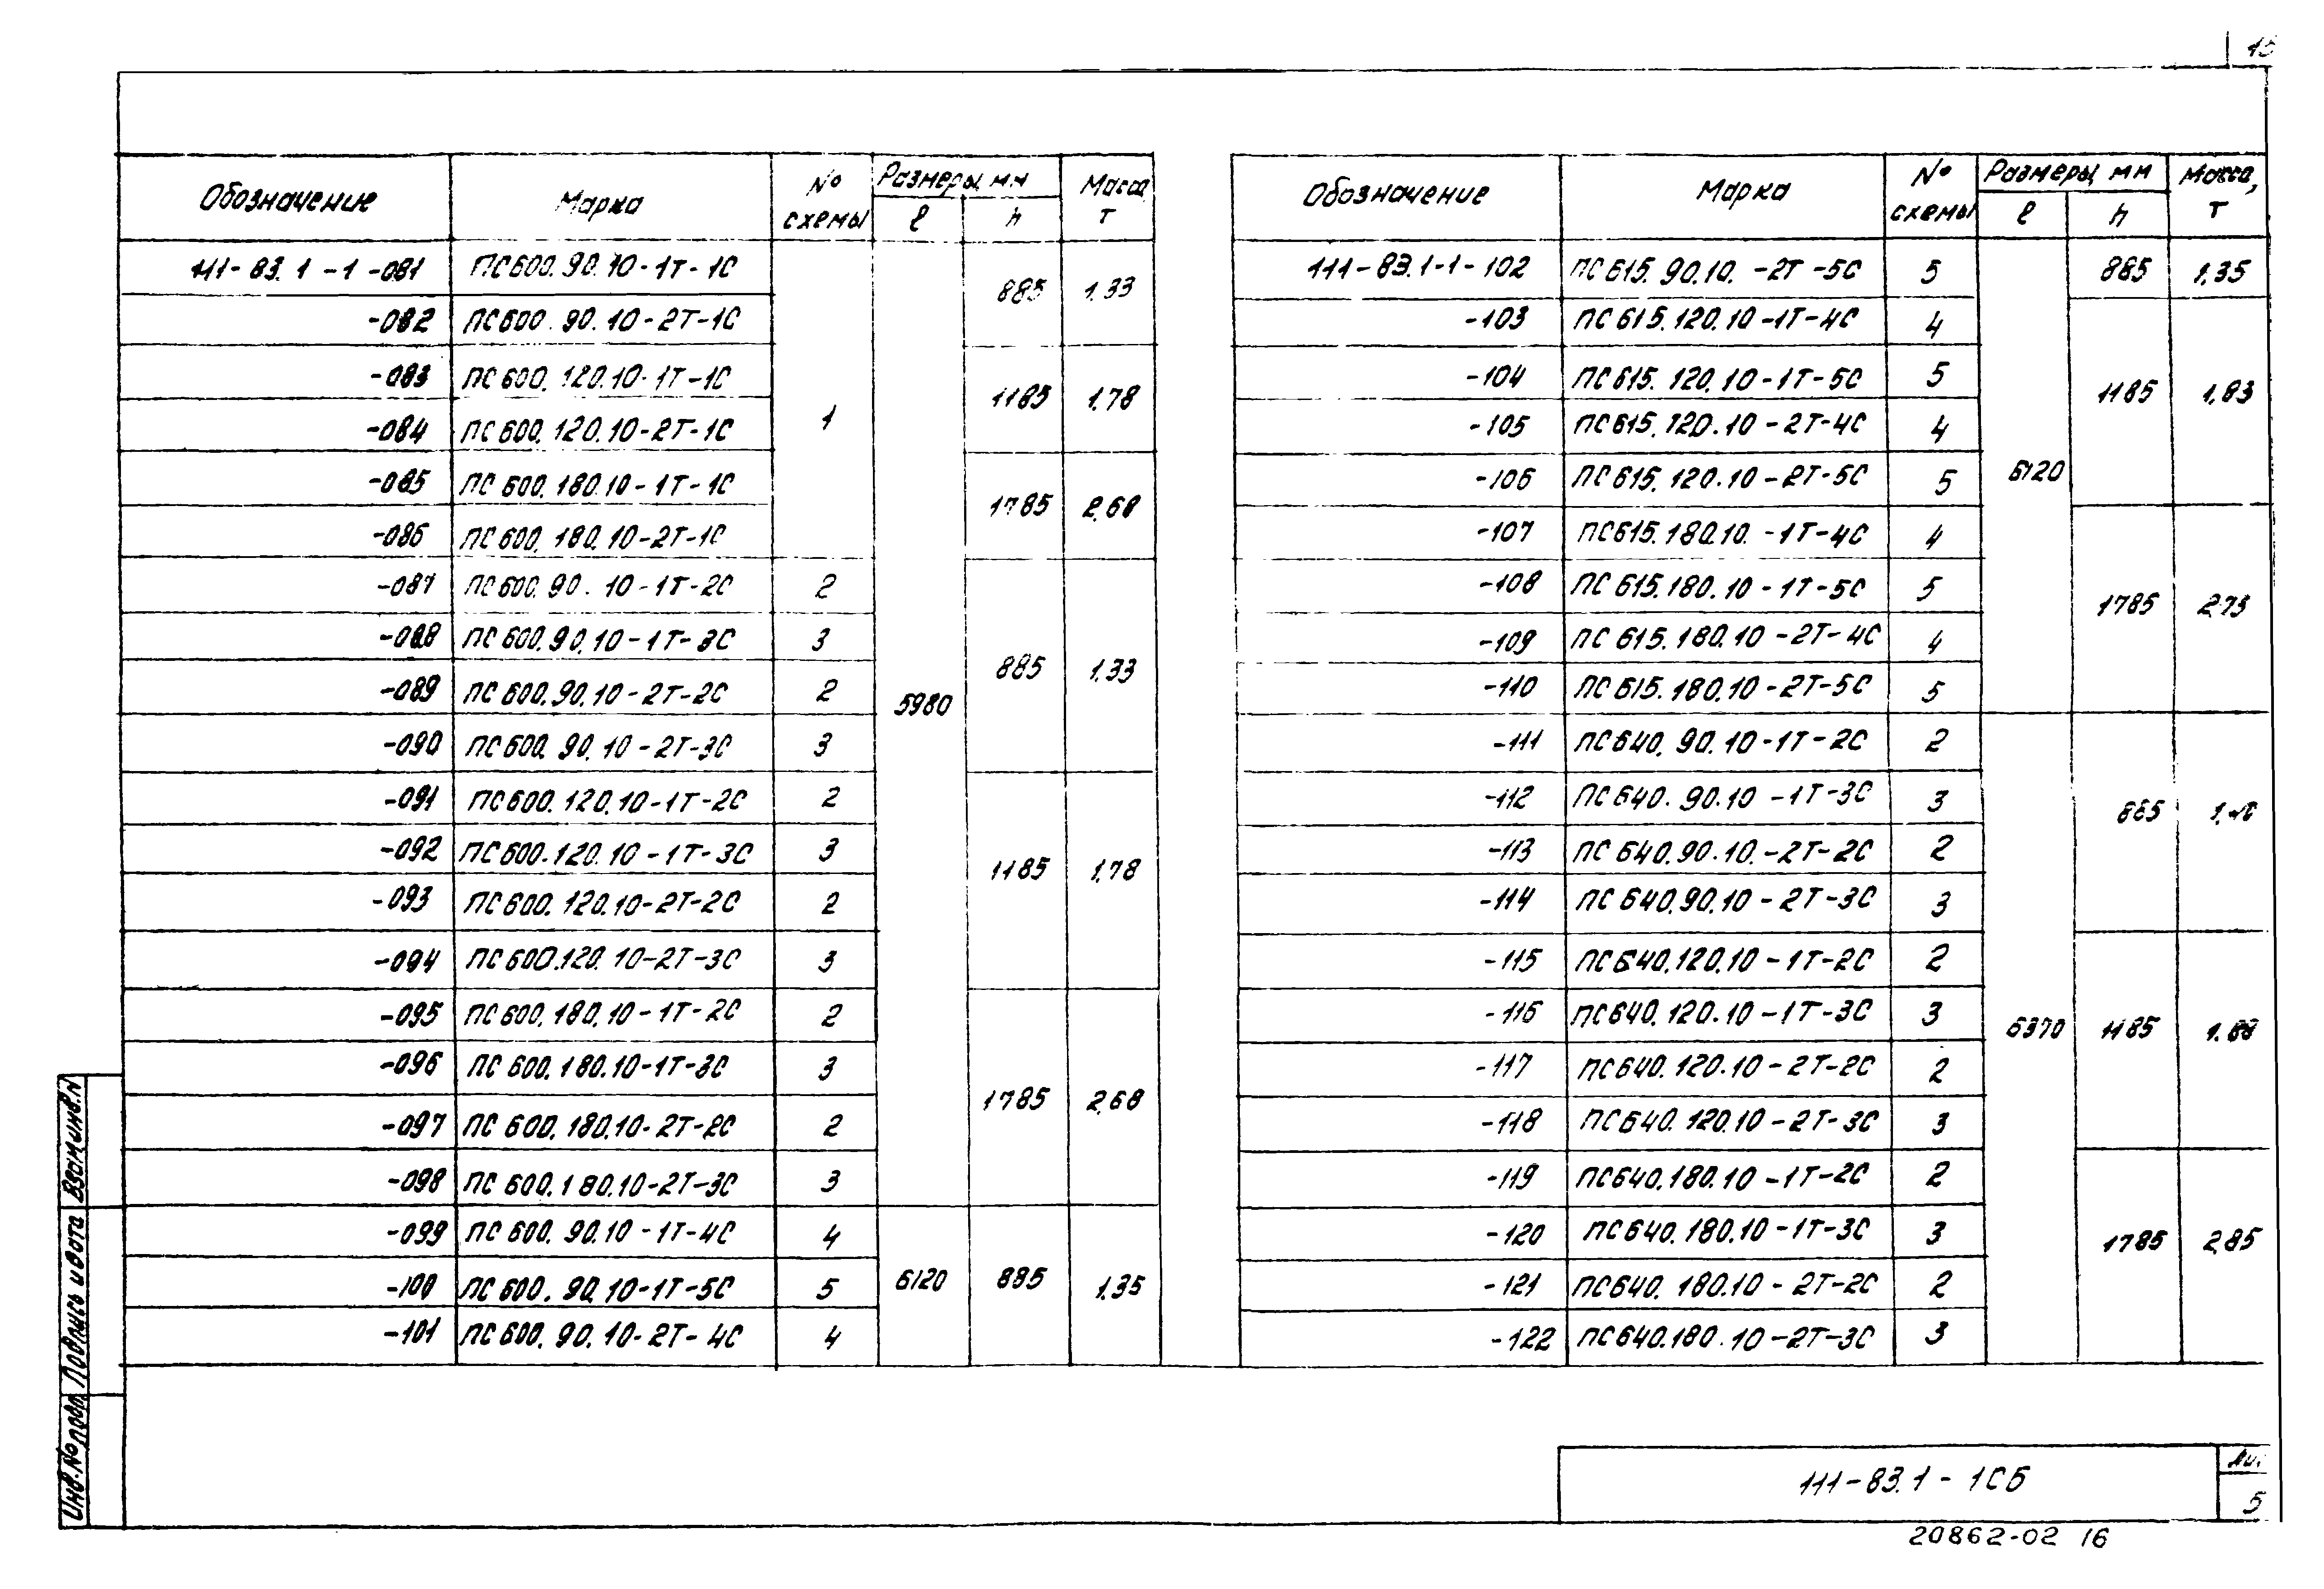 15
Обозначение Марка № схемы Размеры, мм Масса, т
ℓ h
111-83.1-1-081 ПС600.90.10-1Т-1С 1 5980 885 1.33
-082 ПС600.90.10-2Т-1С
-083 ПС600.120.10-1Т-1С 1185 1.78
-084 ПС600.120.10-2Т-1С
-085 ПС600.180.10-1Т-1С 1785 2.68
-086 ПС600.180.10-2Т-1С
-087 ПС600.90.10-1Т-2С 2 885 1.33
-088 ПС600.90.10-1Т-3С 3
-089 ПС600.90.10-2Т-2С 2
-090 ПС600.90.10-2Т-3С 3
-091 ПС600.120.10-1Т-2С 2 1185 1.78
-092 ПС600.120.10-1Т-3С 3
-093 ПС600.120.10-2Т-2С 2
-094 ПС600.120.10-2Т-3С 3
-095 ПС600.180.10-1Т-2С 2 1785 2.68
-096 ПС600.180.10-1Т-3С 3
-097 ПС600.180.10-2Т-2С 2
-098 ПС600.180.10-2Т-3С 3
-099 ПС600.90.10-1Т-4С 4 6120 885 1.35
-100 ПС600.90.10-1Т-5С 5
-101 ПС600.90.10-2Т-4С 4
Обозначение Марка № схемы Размеры, мм Масса, т
ℓ h
111-83.1-1-102 ПС615.90.10.-2Т-5С 5 6120 885 1.35
-103 ПС615.120.10-1Т-4С 4 1185 1.83
-104 ПС615.120.10-1Т-5С 5
-105 ПС615.120.10-2Т-4С 4
-106 ПС615.120.10-2Т-5С 5
-107 ПС615.180.10.-1Т-4С 4 1785 2.73
-108 ПС615.180.10-1Т-5С 5
-109 ПС615.180.10-2Т-4С 4
-110 ПС615.180.10-2Т-5С 5
-111 ПС640.90.10-1Т-2С 2 6370 885
-112 ПС640.90.10-1Т-3С 3
-113 ПС640.90.10.-2Т-2С 2
-114 ПС640.90.10-2Т-3С 3
-115 ПС640.120.10-1Т-2С 2 1185 1.88
-116 ПС640.120.10-1Т-3С 3
-117 ПС640.120.10-2Т-2С 2
-118 ПС640.120.10-2Т-3С 3
-119 ПС640.180.10-1Т-2С 2 1785 2.85
-120 ПС640.180.10-1Т-3С 3
-121 ПС640.180.10-2Т-2С 2
-122 ПС640.180.10-2Т-3С 3
Инв.№подл. Подпись и дата Взам.инв.N
111-83.1-1СБ
5
20862-02 16